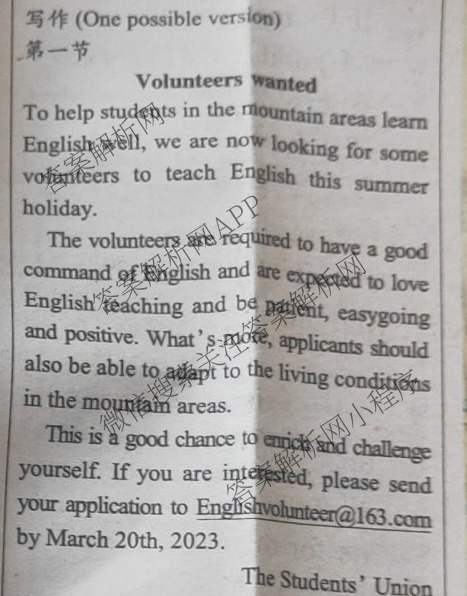 写作 (One possible version)
第一节
Volunteers wanted
To help students in the mountain areas learn
English well, we are now looking for some
volunteers to teach English this summer
holiday.
The volunteers are required to have a good
command of English and are expected to love
English teaching and be patient, easygoing
and positive. What's more, applicants should
also be able to adapt to the living conditions
in the mountain areas.
This is a good chance to enrich and challenge
yourself. If you are interested, please send
your application to Englishvolunteer@163.com
by March 20th, 2023.
The Students' Union
答案解析网
答案解析网APP
微信搜索关注答案解析网
答案解析网小程序